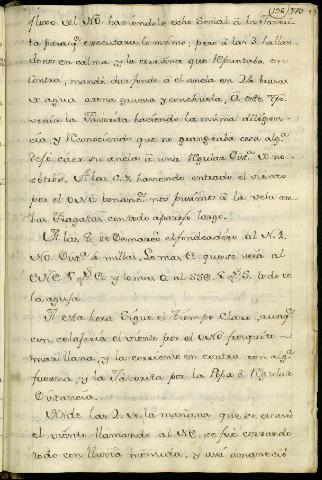 (136) 370
floxo del NO. haviendole echo Señal á la Favori-
ta paraq.e executara lo mismo; pero á las 3. hallan-
donos en calma y la corriente que Repuntaba en
contra, mandé dar fondo á el ancla en 24. brasas
de agua arena gruesa y conchuela, á este tpo.
venía la Favorita haciendo la misma diligen-
cia, y Reconociendo que no grangeaba cosa alg.a
dejó caer su ancla á una Regular Dist.a de no-
sotros. A las 6. haviendo entrado el viento
por el ONO. bonanc.e nos pusimos á la vela am-
bas Fragatas con todo aparejo largo.
A las se Demarcó el fondeadero al N.
NO. Dist.a millas, Lo mas E. que se veía al
y lo mas O. al SSO. todo de
la aguja.
A esta hora Sigue el tiempo Claro, aunq.e
con celagería el viento por el ONO fresquito
mar llana, y la corriente en contra con alg.a
fuerza, y la Favorita por la Popa á Regular
Distancia.
Desde las 2. de la mañana que se escaseó
el viento llamando al NO. se fué cerrando
todo con lluvia menuda, y assi amaneció